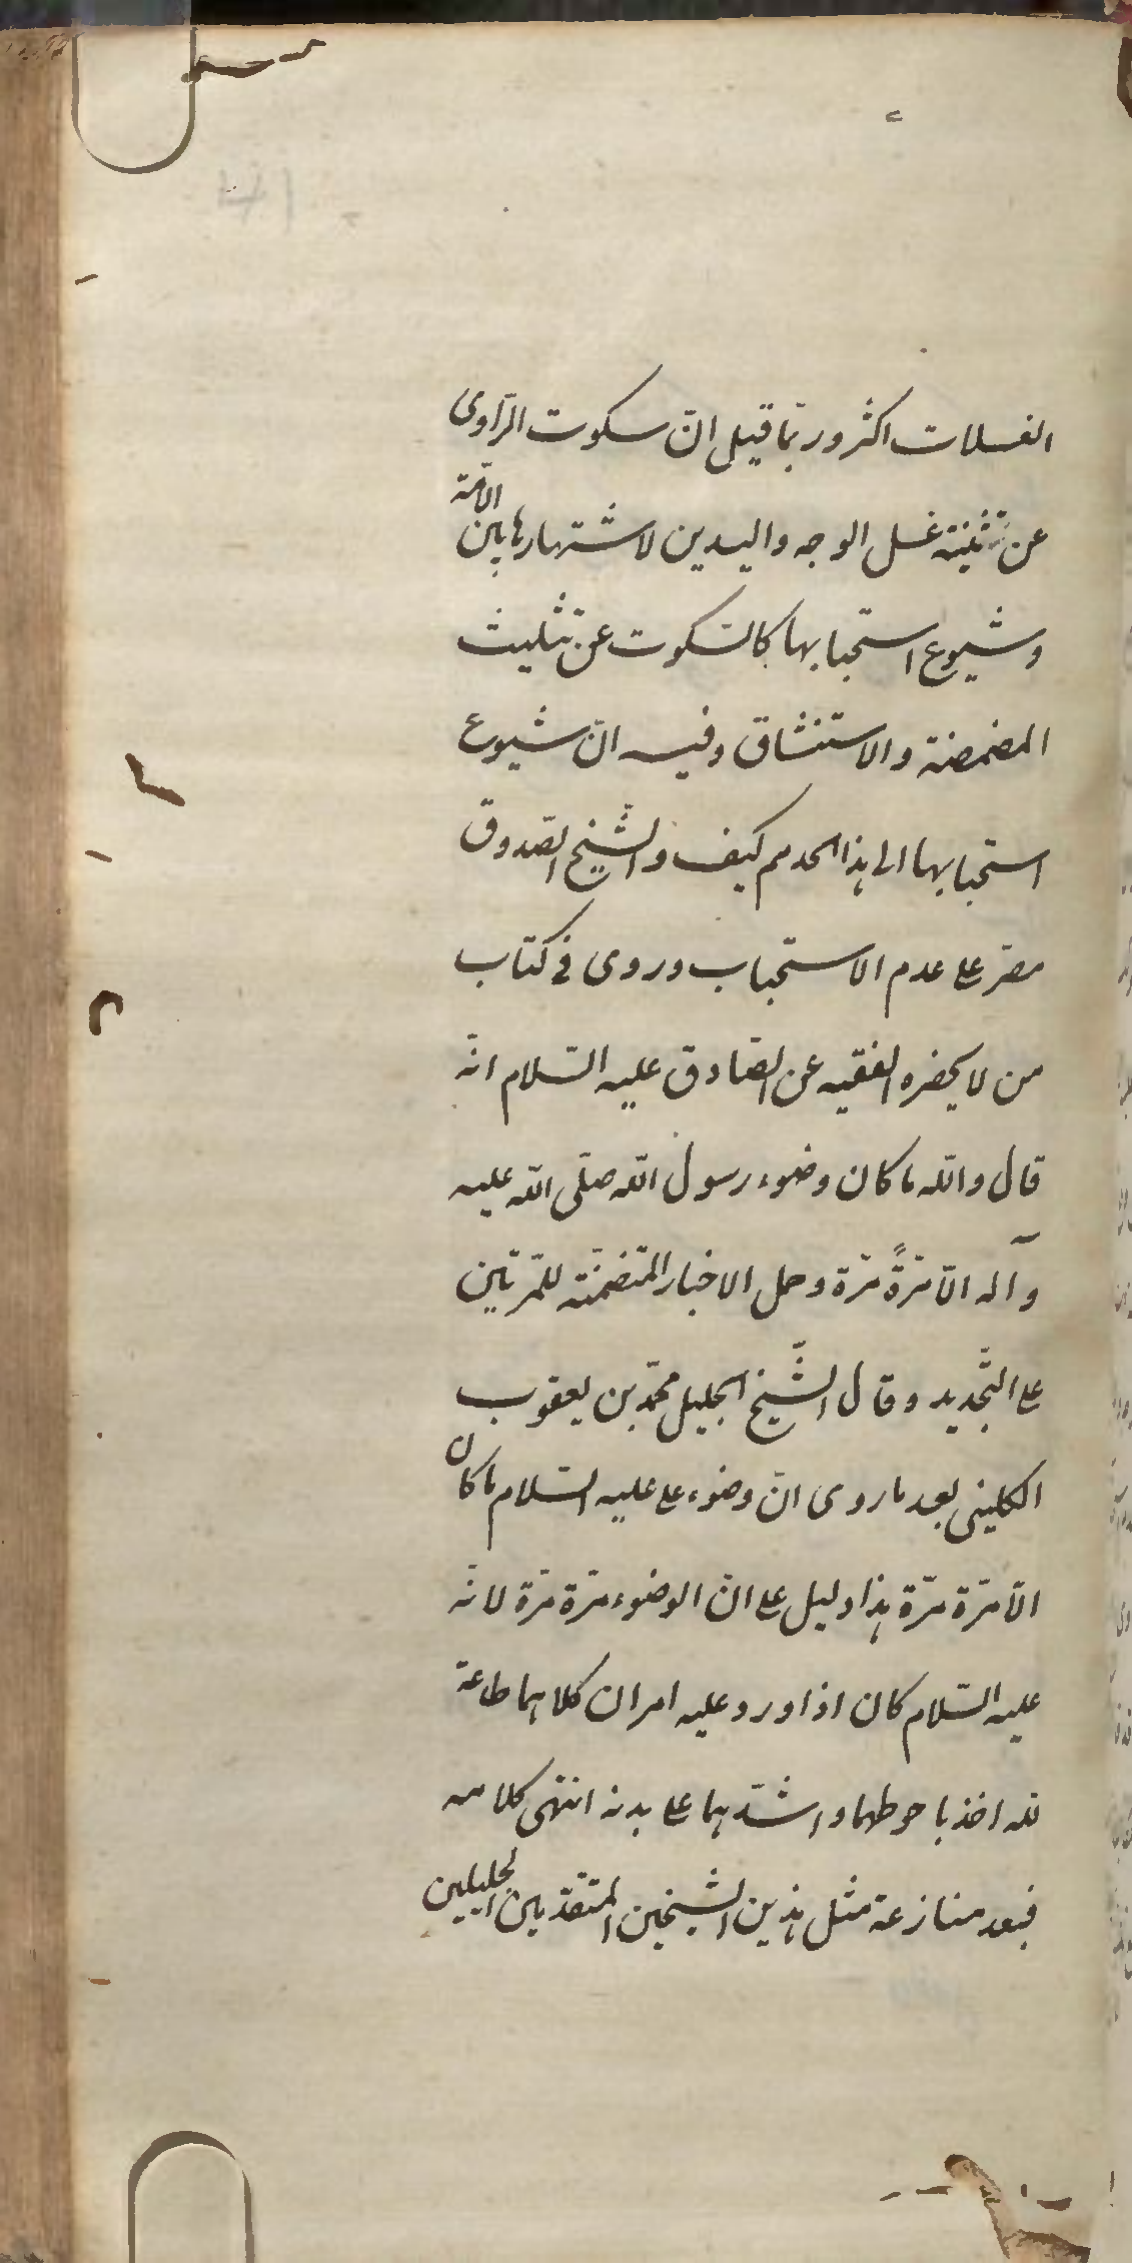 الغسلات اكثر وربّما قيل انّ سكوت الرّاوى
عن تثنية غسل الوجه واليدين لاشتهارها بين الامّة
وشيوع استحبابها كالسّكوت عن تثليث
المضمضة والاستنشاق وفيه انّ شيوع
استحبابها الى هذا الحد مم كيف والشّيخ الصّدوق
مصرّ على عدم الاستحباب وروى فى كتاب
من لا يحضره الفقيه عن الصّادق عليه السّلام انّه
قال والله ما كان وضوء رسول الله صلّى الله عليه
وآله الّا مرّةً مرّة وحمل الاخبار المتضمّنة للمرّتين
على التّجديد وقال الشّيخ الجليل محمّد بن يعقوب
الكلينى بعد ما روى انّ وضوء على عليه السّلام ما كان
الّا مرّة مرّة هذا دليل على انّ الوضوء مرّة مرّة لانّه
عليه السّلام كان اذا ورد عليه امران كلاهما طاعة
لله اخذ باحوطهما واشدّهما على بدنه انتهى كلامه
فبعد منازعة مثل هذين الشّيخين المتقدّمين الجليلين